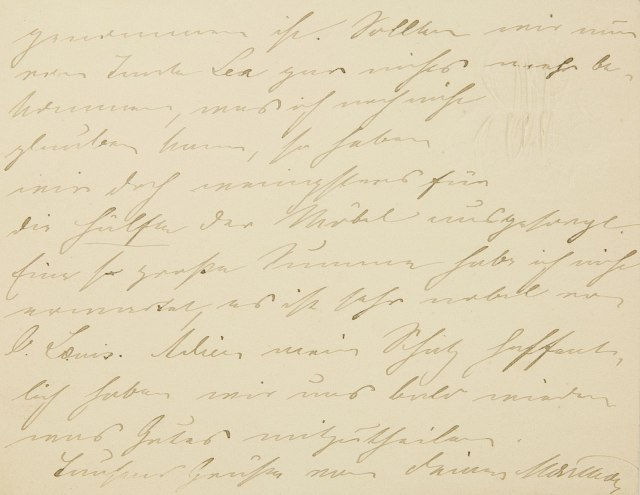 genommen ist. Sollten wir nun
von Tante Lea gar nichts mehr be-
kommen, was ich noch nicht
glauben kann, so haben
wir doch wenigstens für
die Hülfte der Möbel ausgesorgt.
Eine so große Summe habe ich nicht
erwartet, es ist sehr nobel von
O. Louis. Adieu mein Schatz hoffent-
lich haben wir uns bald wieder
was Gutes mitzutheilen.
Tausend Grüße von Deiner